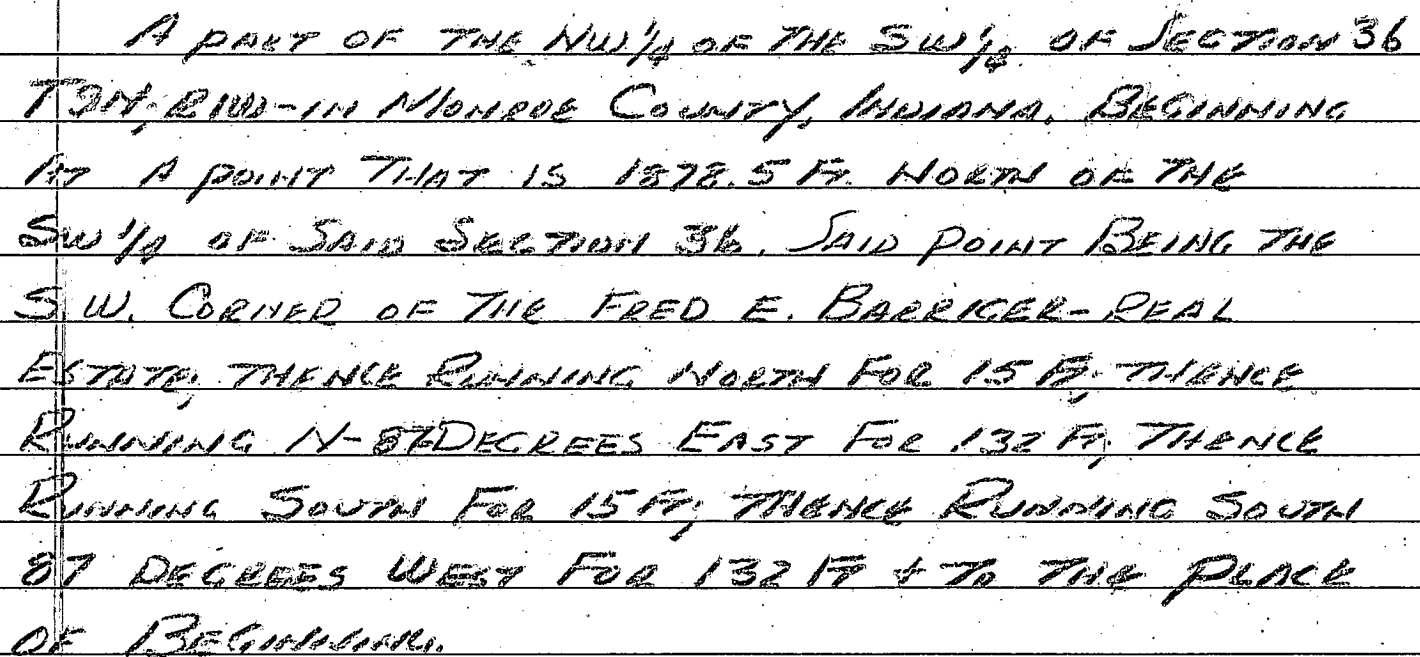 A PART OF THE NW 1/4 OF THE SW 1/4 OF SECTION 36
T9N, R1W-IN MONROE COUNTY, INDIANA. BEGINNING
AT A POINT THAT IS 1878.5 FT. NORTH OF THE
SW 1/4 OF SAID SECTION 36. SAID POINT BEING THE
S.W. CORNER OF THE FRED E. BARRIGER-REAL
ESTATE; THENCE RUNNING NORTH FOR 15 FT; THENCE
RUNNING N-87 DEGREES EAST FOR 132 FT; THENCE
RUNNING SOUTH FOR 15 FT; THENCE RUNNING SOUTH
87 DEGREES WEST FOR 132 FT + TO THE PLACE
OF BEGINNING.